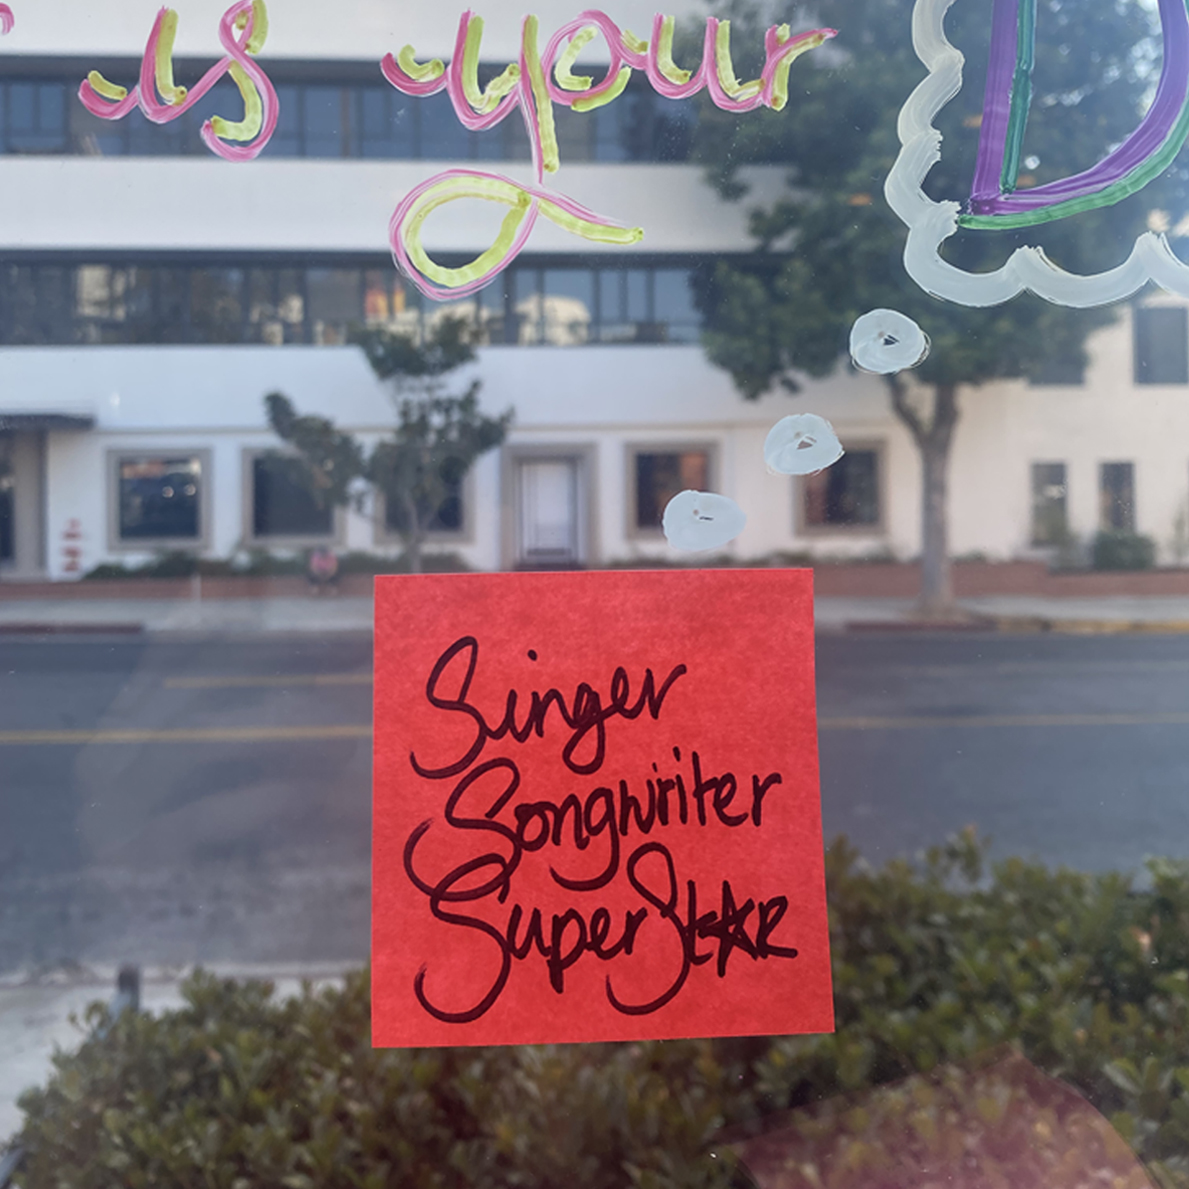 is your D
Singer
Songwriter
SuperStAR